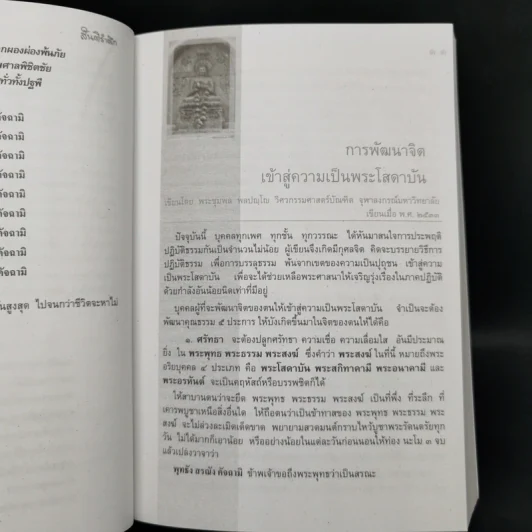 กผองผ่องพ้นภัย
ศาลพิชิตชัย
ทั่วทั้งปฐพี
คัจฉามิ
คัจฉามิ
คัจฉามิ
คัจฉามิ
คัจฉามิ
คัจฉามิ
คัจฉามิ
คัจฉามิ
ในสูงสุด ไปจนกว่าชีวิตจะหาไม่
การพัฒนาจิต
เข้าสู่ความเป็นพระโสดาบัน
เขียนโดย พระชุมพล พลปญฺโญ วิศวกรรมศาสตร์บัณฑิต จุฬาลงกรณ์มหาวิทยาลัย
เขียนเมื่อ พ.ศ. ๒๕๓๓
ปัจจุบันนี้ บุคคลทุกเพศ ทุกชั้น ทุกวรรณะ ได้หันมาสนใจการประพฤติ
ปฏิบัติธรรมกันเป็นจำนวนไม่น้อย ผู้เขียนจึงเกิดมีกุศลจิต คิดจะบรรยายวิธีการ
ปฏิบัติธรรม เพื่อการบรรลุธรรม พ้นจากเขตของความเป็นปุถุชน เข้าสู่ความ
เป็นพระโสดาบัน เพื่อจะได้ช่วยเหลือพระศาสนาให้เจริญรุ่งเรืองในภาคปฏิบัติ
ด้วยกำลังอันน้อยนิดเท่าที่มีอยู่
บุคคลผู้ที่จะพัฒนาจิตของตนให้เข้าสู่ความเป็นพระโสดาบัน จำเป็นจะต้อง
พัฒนาคุณธรรม ๕ ประการ ให้บังเกิดขึ้นมาในจิตของตนให้ได้คือ
๑. ศรัทธา จะต้องปลูกศรัทธา ความเชื่อ ความเลื่อมใส อันมีประมาณ
ยิ่ง ใน พระพุทธ พระธรรม พระสงฆ์ ซึ่งคำว่า พระสงฆ์ ในที่นี้ หมายถึงพระ
อริยบุคคล ๔ ประเภท คือ พระโสดาบัน พระสกิทาคามี พระอนาคามี และ
พระอรหันต์ จะเป็นคฤหัสถ์หรือบรรพชิตก็ได้
ให้สาบานตนว่าจะยึด พระพุทธ พระธรรม พระสงฆ์ เป็นที่พึ่ง ที่ระลึก ที่
เคารพบูชาเหนือสิ่งอื่นใด ให้ถือตนว่าเป็นข้าทาสของ พระพุทธ พระธรรม พระ
สงฆ์ จะไม่ล่วงละเมิดเด็ดขาด พยายามสวดมนต์กราบไหว้บูชาพระรัตนตรัยทุก
วัน ไม่ได้มากก็เอาน้อย หรืออย่างน้อยในแต่ละวันก่อนนอนให้ท่อง นะโม ๓ จบ
แล้วเปล่งวาจาว่า
พุทธัง สรณัง คัจฉามิ ข้าพเจ้าขอถึงพระพุทธว่าเป็นสรณะ